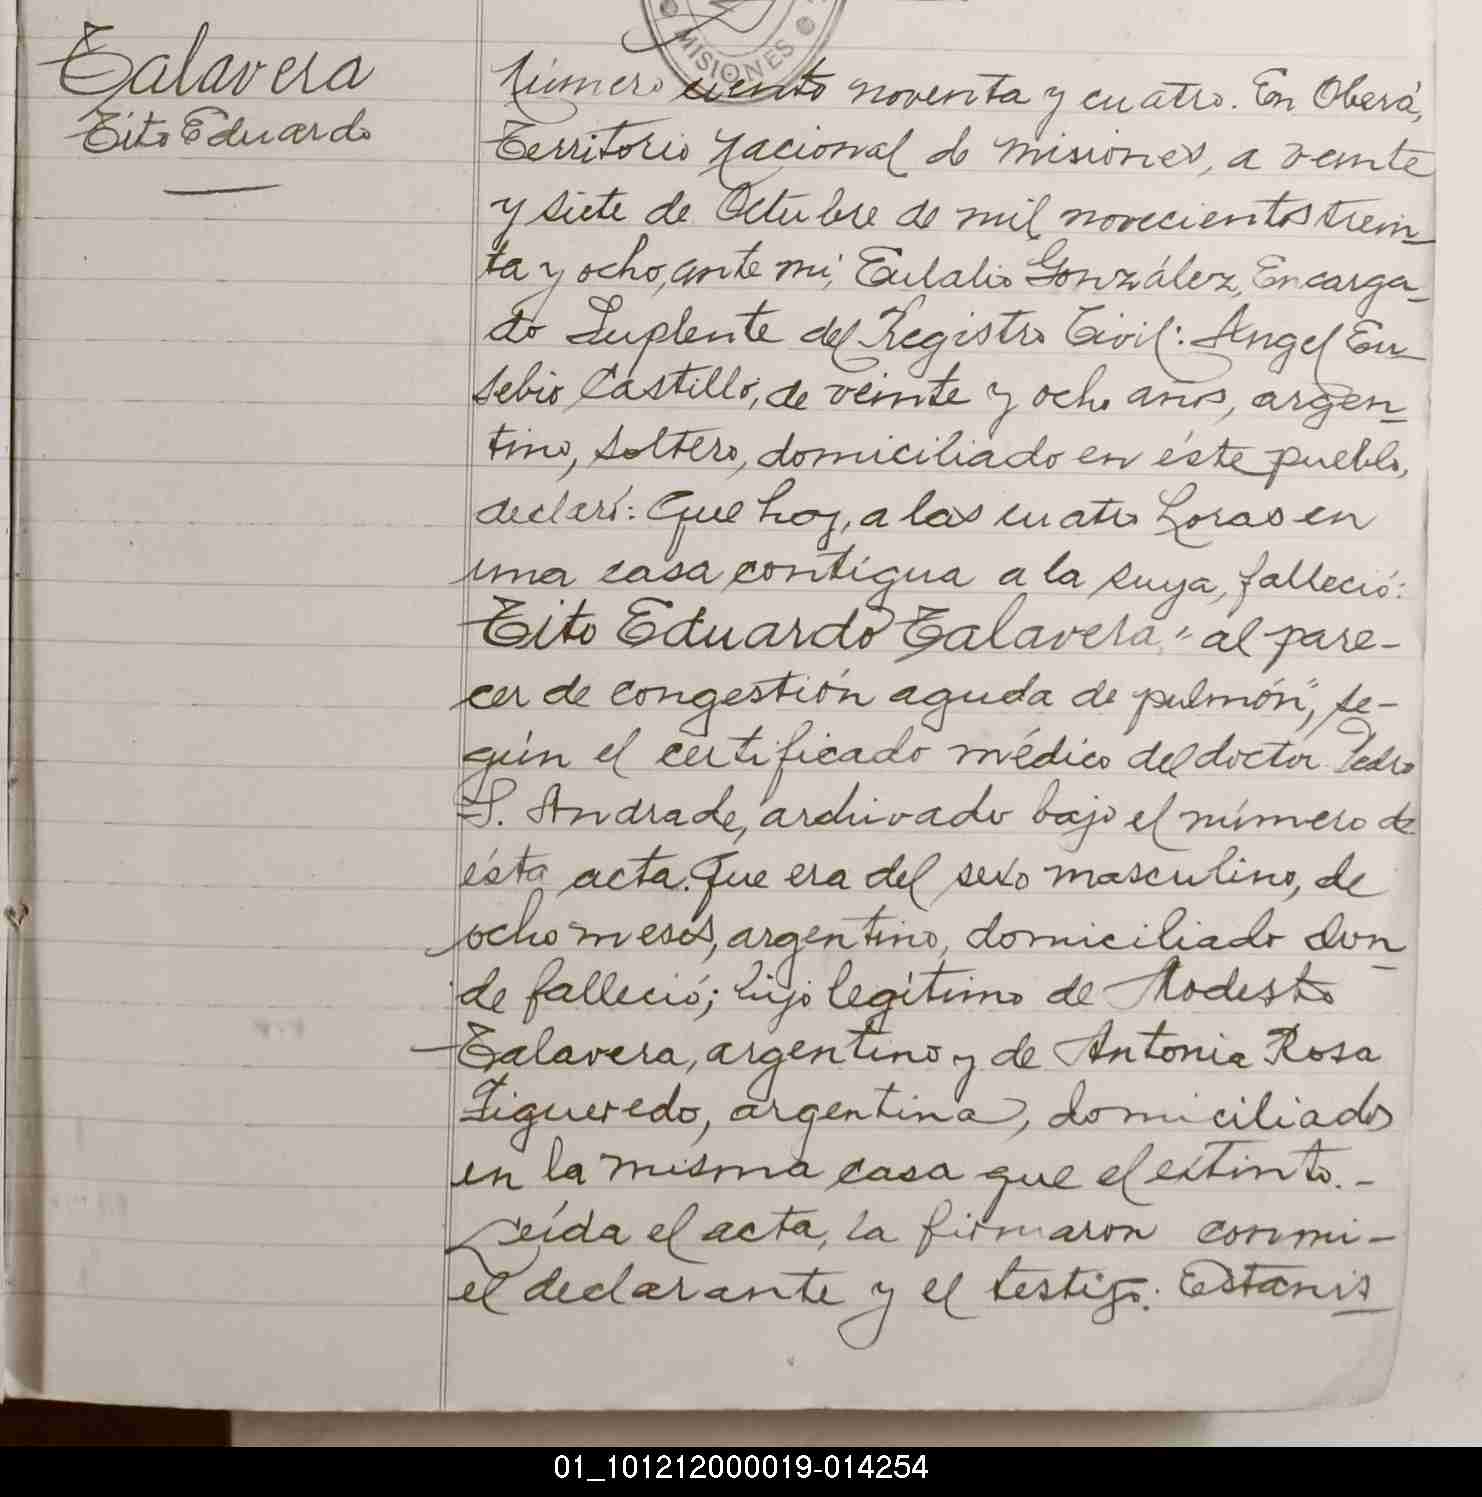 Talavera
Tito Eduardo
MISIONES
Número ciento noventa y cuatro. En Oberá,
Territorio Nacional de Misiones, a veinte
y siete de Octubre de mil novecientos trein-
ta y ocho, ante mí, Eulalio González, Encarga-
do Suplente del Registro Civil: Angel Eu-
sebio Castillo, de veinte y ocho años, argen-
tino, soltero, domiciliado en éste pueblo,
declaró: Que hoy, a las cuatro horas en
una casa contigua a la suya, falleció:
Tito Eduardo Talavera, "al pare-
cer de congestión aguda de pulmón", se-
gún el certificado médico del doctor Pedro
S. Andrade, archivado bajo el número de
ésta acta. Que era del sexo masculino, de
ocho meses, argentino, domiciliado don-
de falleció; hijo legítimo de Modesto
Talavera, argentino y de Antonia Rosa
Figueredo, argentina, domiciliados
en la misma casa que el extinto.-
Leída el acta, la firmaron conmi-
el declarante y el testigo: Estanis-
01_101212000019-014254